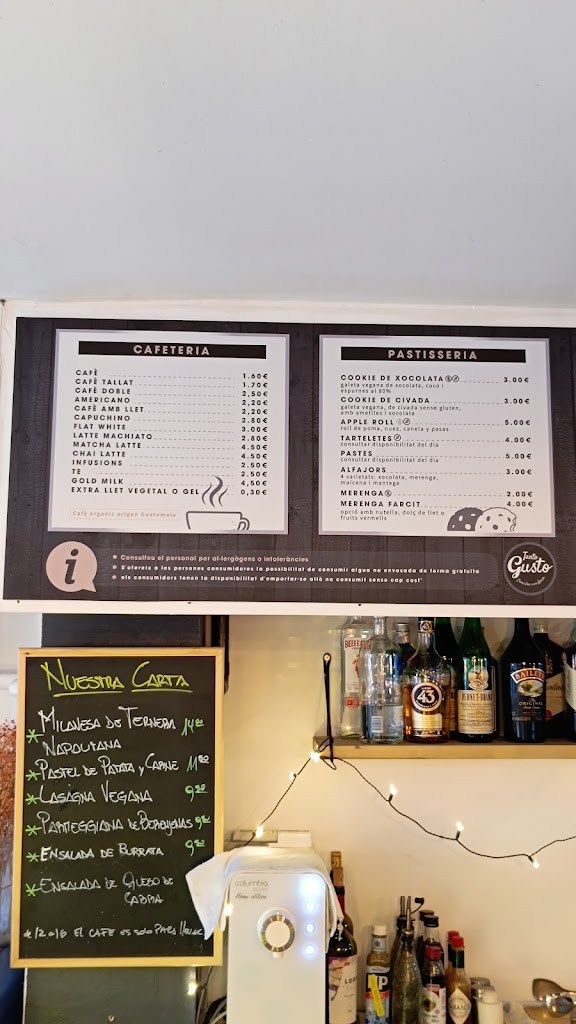 CAFETERIA
CAFÈ 1.60€
CAFÈ TALLAT 1.70€
CAFÈ DOBLE 2,50€
AMERICANO 2,20€
CAFÈ AMB LLET 2,20€
CAPUCHINO 2.80€
FLAT WHITE 3.00€
LATTE MACHIATO 2.80€
MATCHA LATTE 4.50€
CHAI LATTE 4.50€
INFUSIONS 2.50€
TE 2.50€
GOLD MILK 4,50€
EXTRA LLET VEGETAL O GEL 0,30€
Cafè organic origen Guatemala
PASTISSERIA
COOKIE DE XOCOLATA 3.00€
galeta vegana de xocolata, coco i
espurnes al 80%
COOKIE DE CIVADA 3.00€
galeta vegana, de civada sense gluten,
amb ametlles i xocolata
APPLE ROLL 5.00€
roll de poma, nuez, canela y pasas
TARTELETES 4.00€
consultar disponibilitat del dia
PASTES 5.00€
consultar disponibilitat del dia
ALFAJORS 3.00€
4 varietats: xocolata, merenga,
maicena i mantega
MERENGA 2.00€
MERENGA FARCIT 4.00€
opció amb nutella, dolç de llet o
fruits vermells
i
Consulteu el personal per al·lergògens o intoleràncies
S'ofereix a les persones consumidores la possibilitat de consumir aigua no envasada de forma gratuïta
els consumidors tenen la disponibilitat d'emportar-se allò no consumit sense cap cost
Tanto
Gusto
NUESTRA CARTA
* MILANESA DE TERNERA 14
NAPOLITANA
* PASTEL DE PATATA Y CARNE 11
* LASAGNA VEGANA 9
* PARMEGGIANA DE BERENJENAS 9
* ENSALADA DE BURRATA 9
* ENSALADA DE QUESO DE
CABRA
EL CAFE ES SOLO PARA LLEVAR
BEEFEATER
43
FERNET-BRANCA
BAILEYS
ORIGINAL
columbia
Home edition
HP
TABASCO